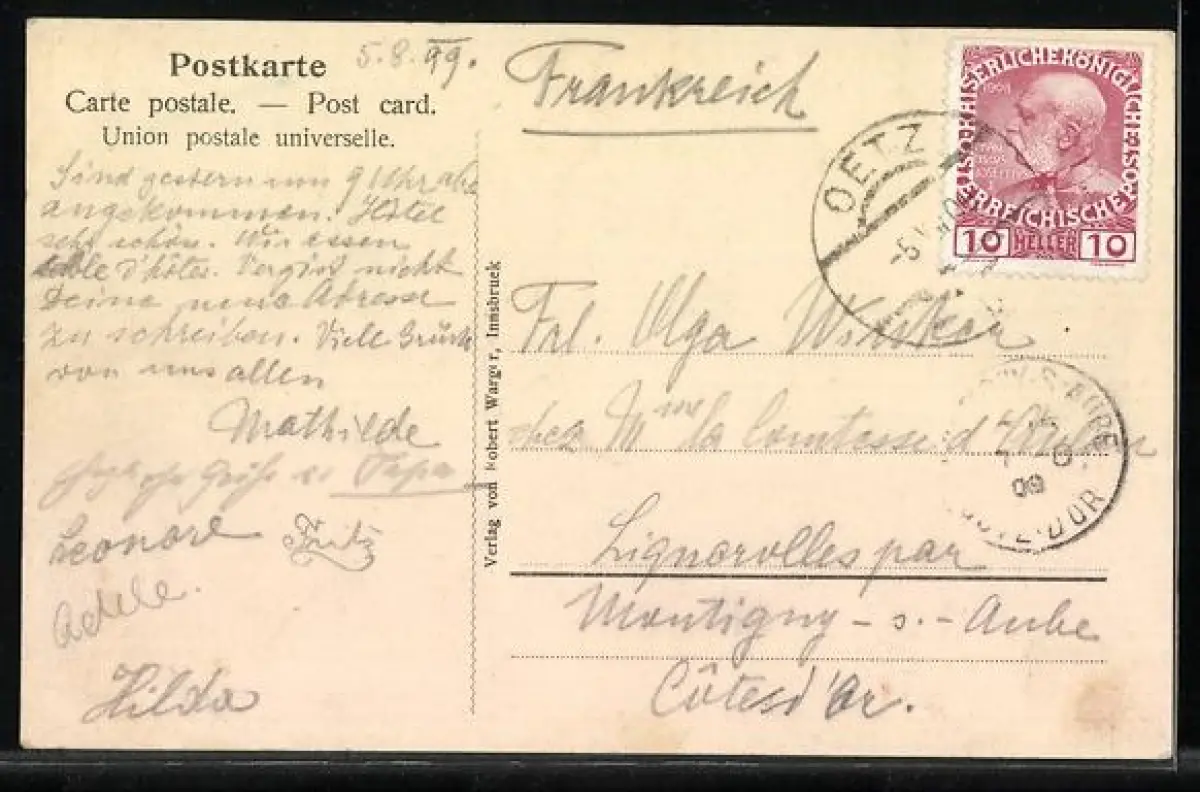 Postkarte
5.8.09.
Carte postale. — Post card.
Union postale universelle.
Sind gestern um 9 Uhr abd
angekommen. Hotel
sehr schön. Wir essen
table d'hôtes. Vergiss nicht
Deine neue Adresse
zu schreiben. Viele Grüsse
von uns allen
Mathilde
Papa
Leonore Fritz
Adele.
Hilda
Verlag von Robert Warger, Innsbruck
Frankreich
KAISERLICHE KÖNIGLICHE ÖSTERREICHISCHE POST
10 HELLER 10
OETZ
-5
Frl. Olga Winkler
chez Mme la Comtesse d'
Lignerolles par
Montigny-s.-Aube
Côtes d'Or.
S-AUBE
09
COTE-D'OR